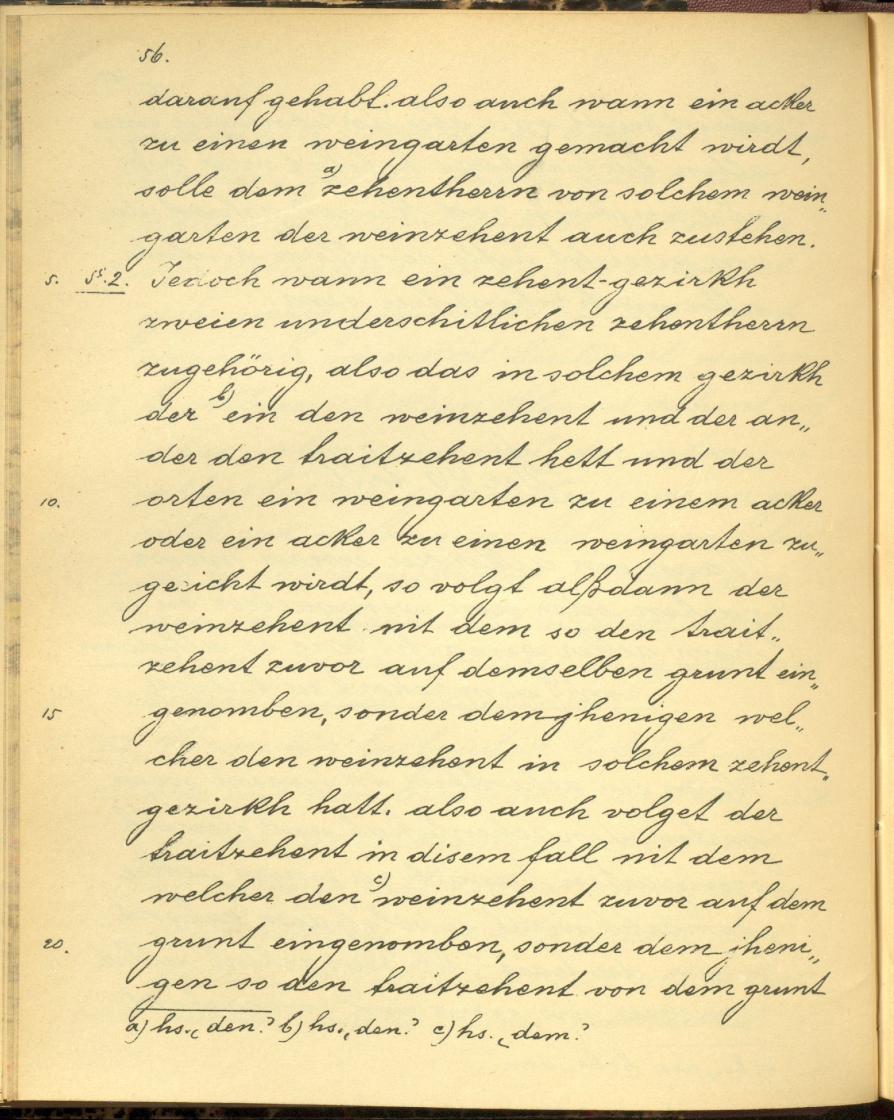 56.
darauf gehabt. also auch wann ein acker
zu einen weingarten gemacht wirdt,
solle dem a) zehentherrn von solchem wein„
garten der weinzehent auch zustehen.
5. §§.2. Jedoch wann ein zehent-gezirkh
zweien underschitlichen zehentherrn
zugehörig, also das in solchem gezirkh
der b) ein den weinzehent und der an„
der den traitzehent hett und der
10. orten ein weingarten zu einem acker
oder ein acker zu einen weingarten zu„
gericht wirdt, so volgt alßdann der
weinzehent nit dem so den trait„
zehent zuvor auf demselben grunt ein„
15 genomben, sonder demjhenigen wel„
cher den weinzehent in solchem zehent„
gezirkh hatt. also auch volget der
traitzehent in disem fall nit dem
welcher den c) weinzehent zuvor auf dem
20. grunt eingenomben, sonder dem jheni„
gen so den traitzehent von dem grunt
a) hs. „den.” b) hs. „den.” c) hs. „dem.”